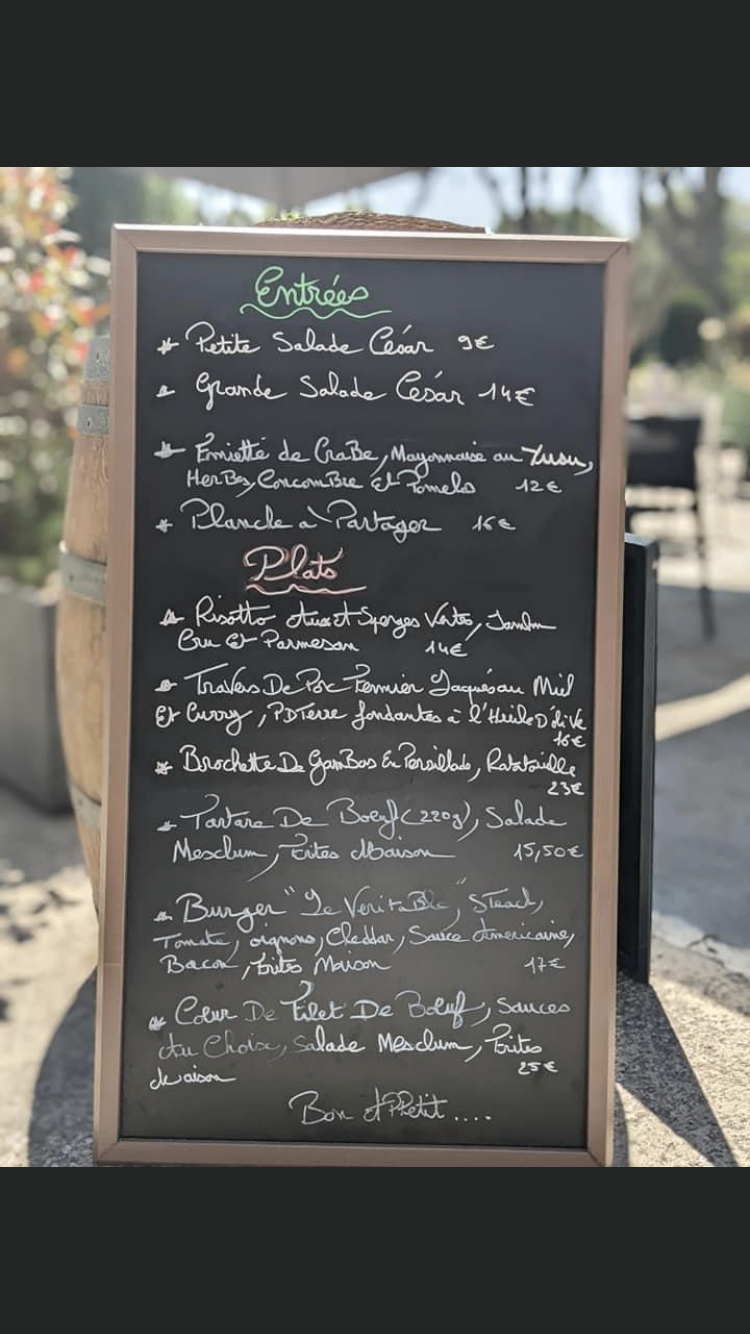 Entrées
* Petite Salade César 9€
* Grande Salade César 14€
* Emietté de Crabe, Mayonnaise au Yuzu,
Herbes, Concombre Et Pomelo 12€
* Planche à Partager 16€
Plats
* Risotto Aux Asperges Vertes, Jambon
Cru Et Parmesan 14€
* Travers De Porc Fermier Laqués au Miel
Et Curry, PDTerre fondantes à l'Huile D'olive
16€
* Brochette De Gambas En Persillade, Ratatouille
23€
* Tartare De Boeuf (220g), Salade
Mesclum, Frites Maison 15,50€
* Burger "Le Veritable", Steack,
Tomate, oignons, Cheddar, Sauce Americaine,
Bacon, Frites Maison 17€
* Cœur De Filet De Bœuf, Sauces
Au Choix, Salade Mesclum, Frites
Maison 25€
Bon APPétit....